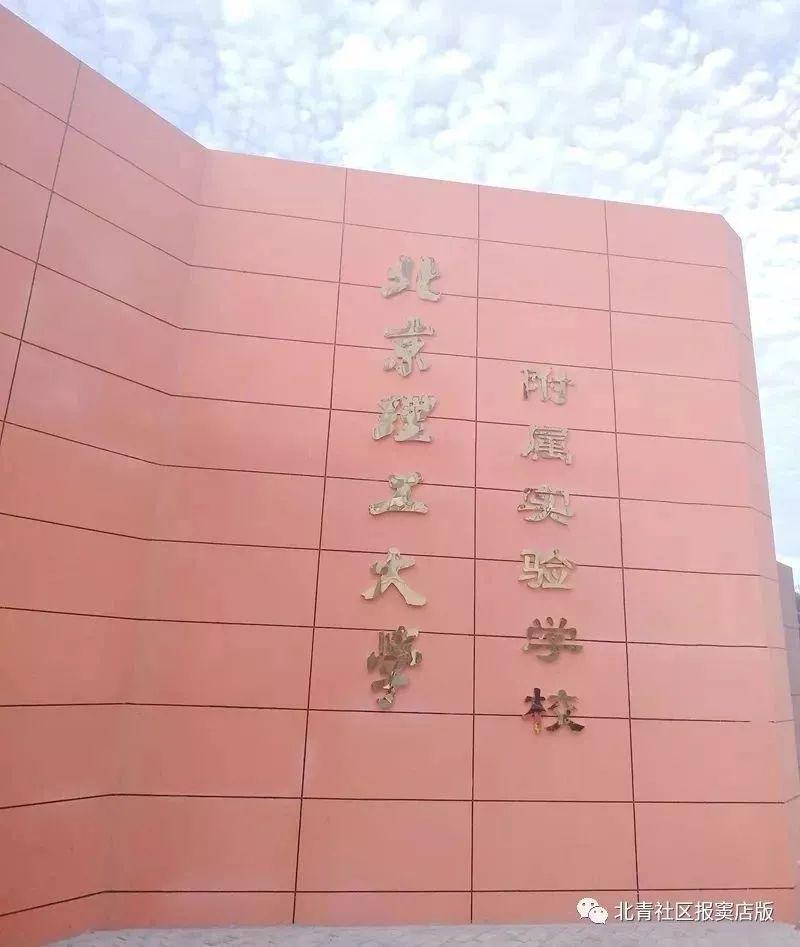 北京理工大学
附属实验学校
北青社区报窦店版